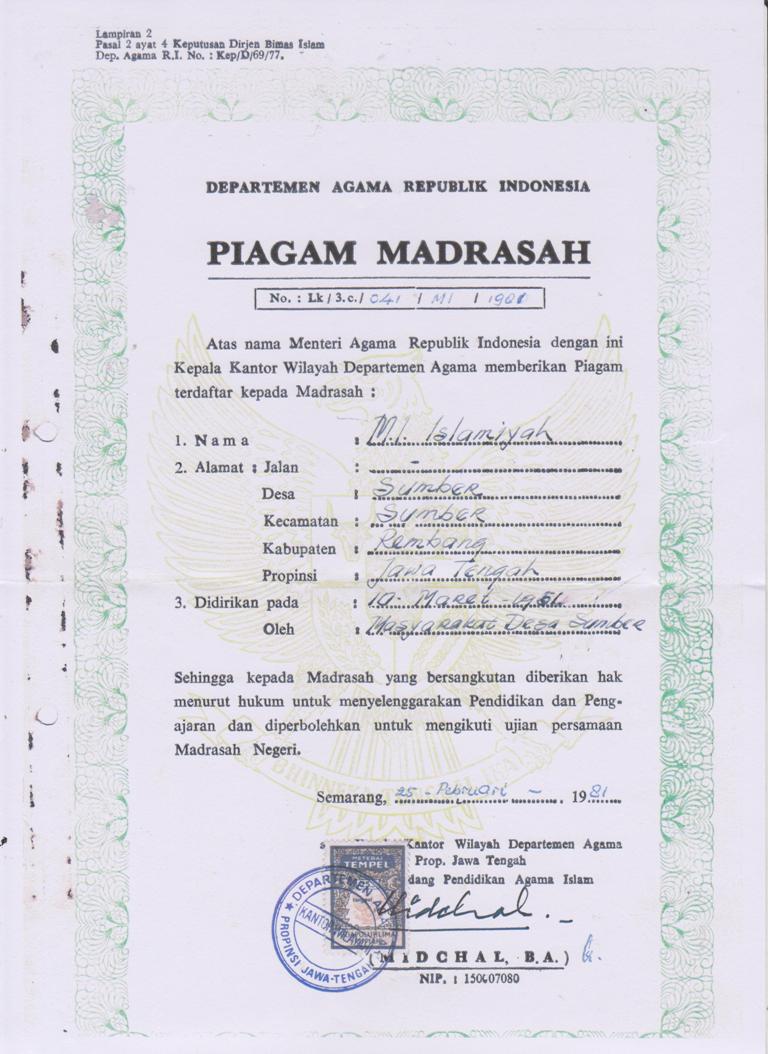 Lampiran 2
Pasal 2 ayat 4 Keputusan Dirjen Bimas Islam
Dep. Agama R.I. No. : Kep/D/69/77.
DEPARTEMEN AGAMA REPUBLIK INDONESIA
PIAGAM MADRASAH
No. : Lk / 3.c. / 041 / MI / 1981
Atas nama Menteri Agama Republik Indonesia dengan ini
Kepala Kantor Wilayah Departemen Agama memberikan Piagam
terdaftar kepada Madrasah :
1. Nama : M.I. Islamiyah
2. Alamat : Jalan : -
Desa : Sumber
Kecamatan : Sumber
Kabupaten : Rembang
Propinsi : Jawa Tengah
3. Didirikan pada : 10 - Maret - 1951
Oleh : Masyarakat Desa Sumber
Sehingga kepada Madrasah yang bersangkutan diberikan hak
menurut hukum untuk menyelenggarakan Pendidikan dan Peng-
ajaran dan diperbolehkan untuk mengikuti ujian persamaan
Madrasah Negeri.
BHINNEKA
Semarang, 25 - Pebruari - 1981
Kantor Wilayah Departemen Agama
Prop. Jawa Tengah
dang Pendidikan Agama Islam
METERAI
TEMPEL
DEPARTEMEN
KANTOR
PROPINSI JAWA-TENGAH
Midchal
(MIDCHAL, B.A.)
NIP. : 150607080